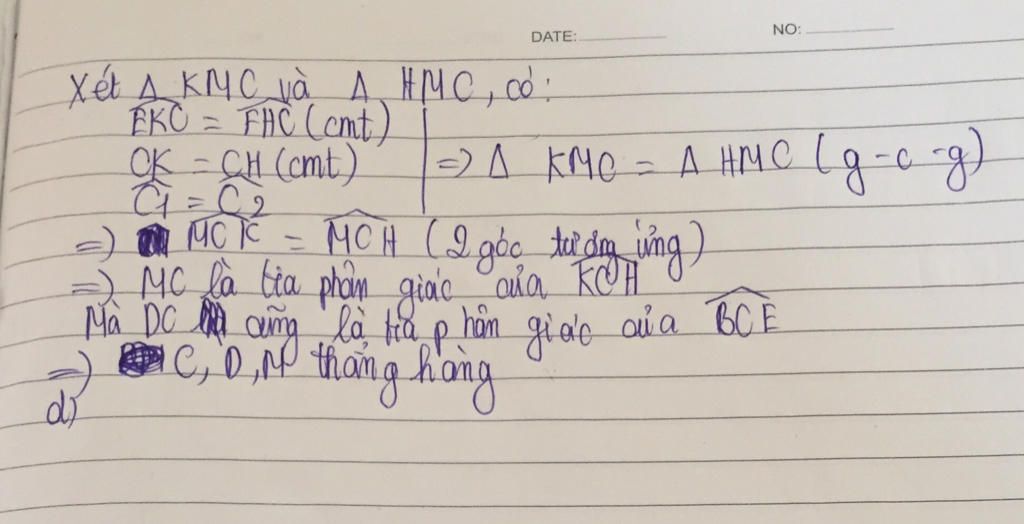 DATE: NO:
Xét Δ KMC và Δ HMC, có:
EKC = FHC (cmt)
CK = CH (cmt)
C1 = C2
=> Δ KMC = Δ HMC (g-c-g)
=> MCK = MCH (2 góc tương ứng)
=> MC là tia phân giác của KCH
Mà DC cũng là tia phân giác của BCE
=> C, D, M thẳng hàng
d)